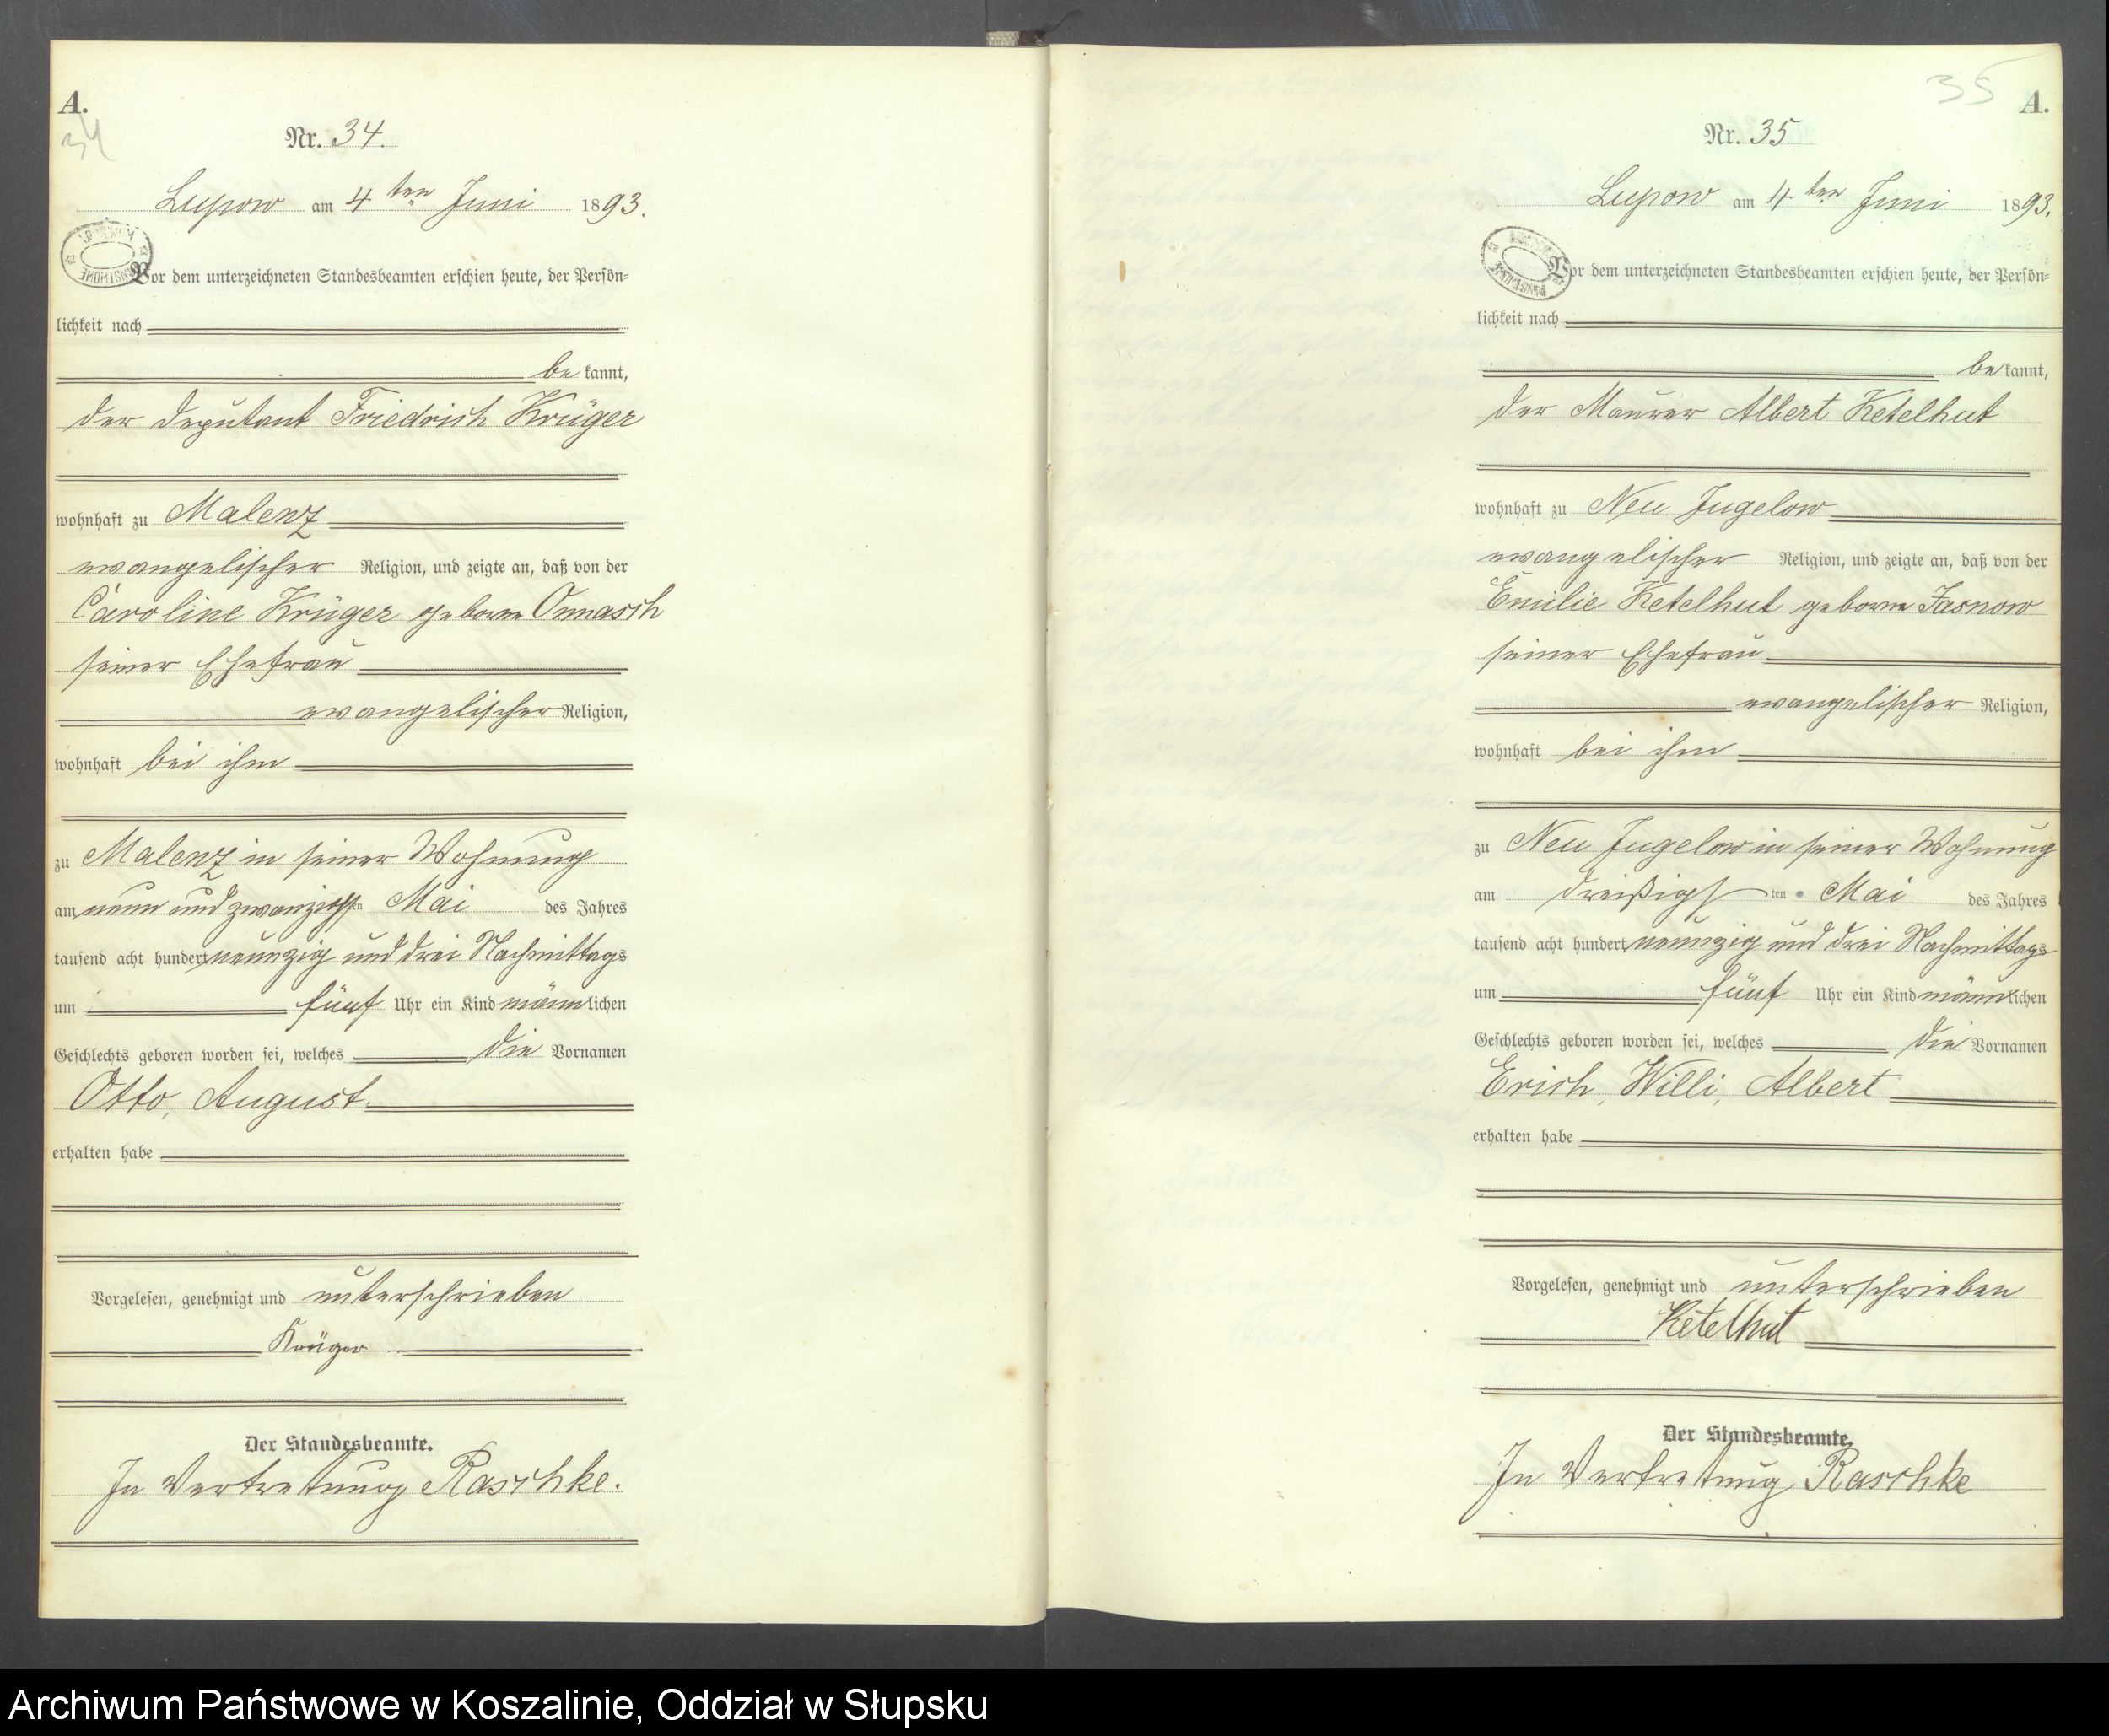 A.
34
Nr. 34.
Lupow am 4ten Juni 1893.
Vor dem unterzeichneten Standesbeamten erschien heute, der Persön=
lichkeit nach
be kannt,
der Deputant Friedrich Krüger
wohnhaft zu Malenz
evangelischer Religion, und zeigte an, daß von der
Caroline Krüger geborne Onnasch
seiner Ehefrau
evangelischer Religion,
wohnhaft bei ihm
zu Malenz in seiner Wohnung
am neun und zwanzigsten Mai des Jahres
tausend acht hundert neunzig und drei Nachmittags
um fünf Uhr ein Kind männlichen
Geschlechts geboren worden sei, welches die Vornamen
Otto, August.
erhalten habe
Vorgelesen, genehmigt und unterschrieben
Krüger
Der Standesbeamte.
In Vertretung Raschke.
35
A.
Nr. 35
Lupow am 4ten Juni 1893.
Vor dem unterzeichneten Standesbeamten erschien heute, der Persön=
lichkeit nach
be kannt,
der Maurer Albert Ketelhut
wohnhaft zu Neu Jugelow
evangelischer Religion, und zeigte an, daß von der
Emilie Ketelhut geborne Jasnow
seiner Ehefrau
evangelischer Religion,
wohnhaft bei ihm
zu Neu Jugelow in seiner Wohnung
am dreißigsten Mai des Jahres
tausend acht hundert neunzig und drei Nachmittags
um fünf Uhr ein Kind männlichen
Geschlechts geboren worden sei, welches die Vornamen
Erich, Willi, Albert
erhalten habe
Vorgelesen, genehmigt und unterschrieben
Ketelhut
Der Standesbeamte.
In Vertretung Raschke
Archiwum Państwowe w Koszalinie, Oddział w Słupsku